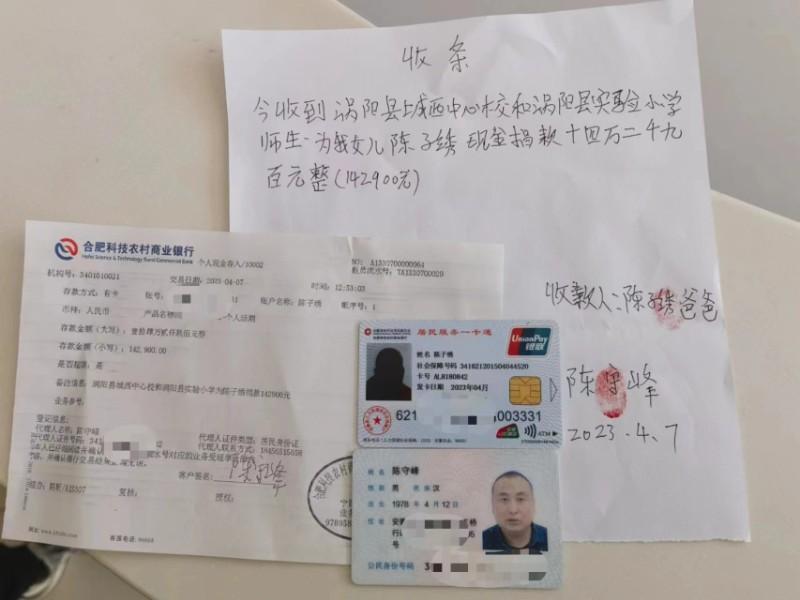 收条
今收到涡阳县城西中心校和涡阳县实验小学
师生为我女儿陈子绣现金捐款十四万二千九
百元整(142900元)
收款人:陈子绣爸爸
陈守峰
2023.4.7
合肥科技农村商业银行
Hefei Science & Technology Rural Commercial Bank
个人现金存入/10002
机构号:3401610021
交易日期:2023-04-07
时间:12:53:03
存款方式:有卡
账号:
账户名称:陈子绣
币种:人民币
产品名称
个人活期
存款金额(大写):壹拾肆万贰仟玖佰元整
存款金额(小写):142,900.00
备注信息:涡阳县城西中心校和涡阳县实验小学为陈子绣捐款142900元
业务参号:
登记信息:
代理人名称:陈守峰
代理人证件号码:
代理人证件类型:居民身份证
客户签名:
陈守峰
复核:
授权:
居民服务一卡通
UnionPay
银联
姓名 陈子绣
社会保障号码
卡号
发卡日期 2023年04月
621
003331
ATM
姓名 陈守峰
性别 男 民族 汉
出生 1978 年 4 月 12 日
公民身份号码 3